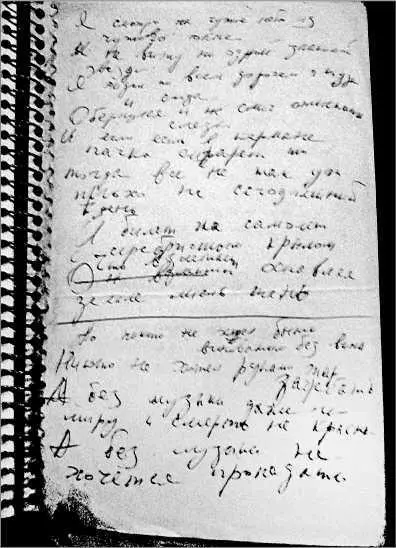 Я смотрю на чужое небо из
чужого окна
И не вижу ни одной знакомой
звезды
Я ходил по всем дорогам и туда
и сюда
Обернулся и не смог
следы
И если есть в кармане
пачка сигарет
все не так уж
плохо на сегодняшний
день
И билет на самолет
с серебристым крылом
Что взлетая
оставляет
земле лишь тень
Но никто не хотел быть
виноватым без вина
Никто не хотел руками жар
загребать
А без музыки даже на
миру и смерть не красна
А без музыки не
хочется пропадать